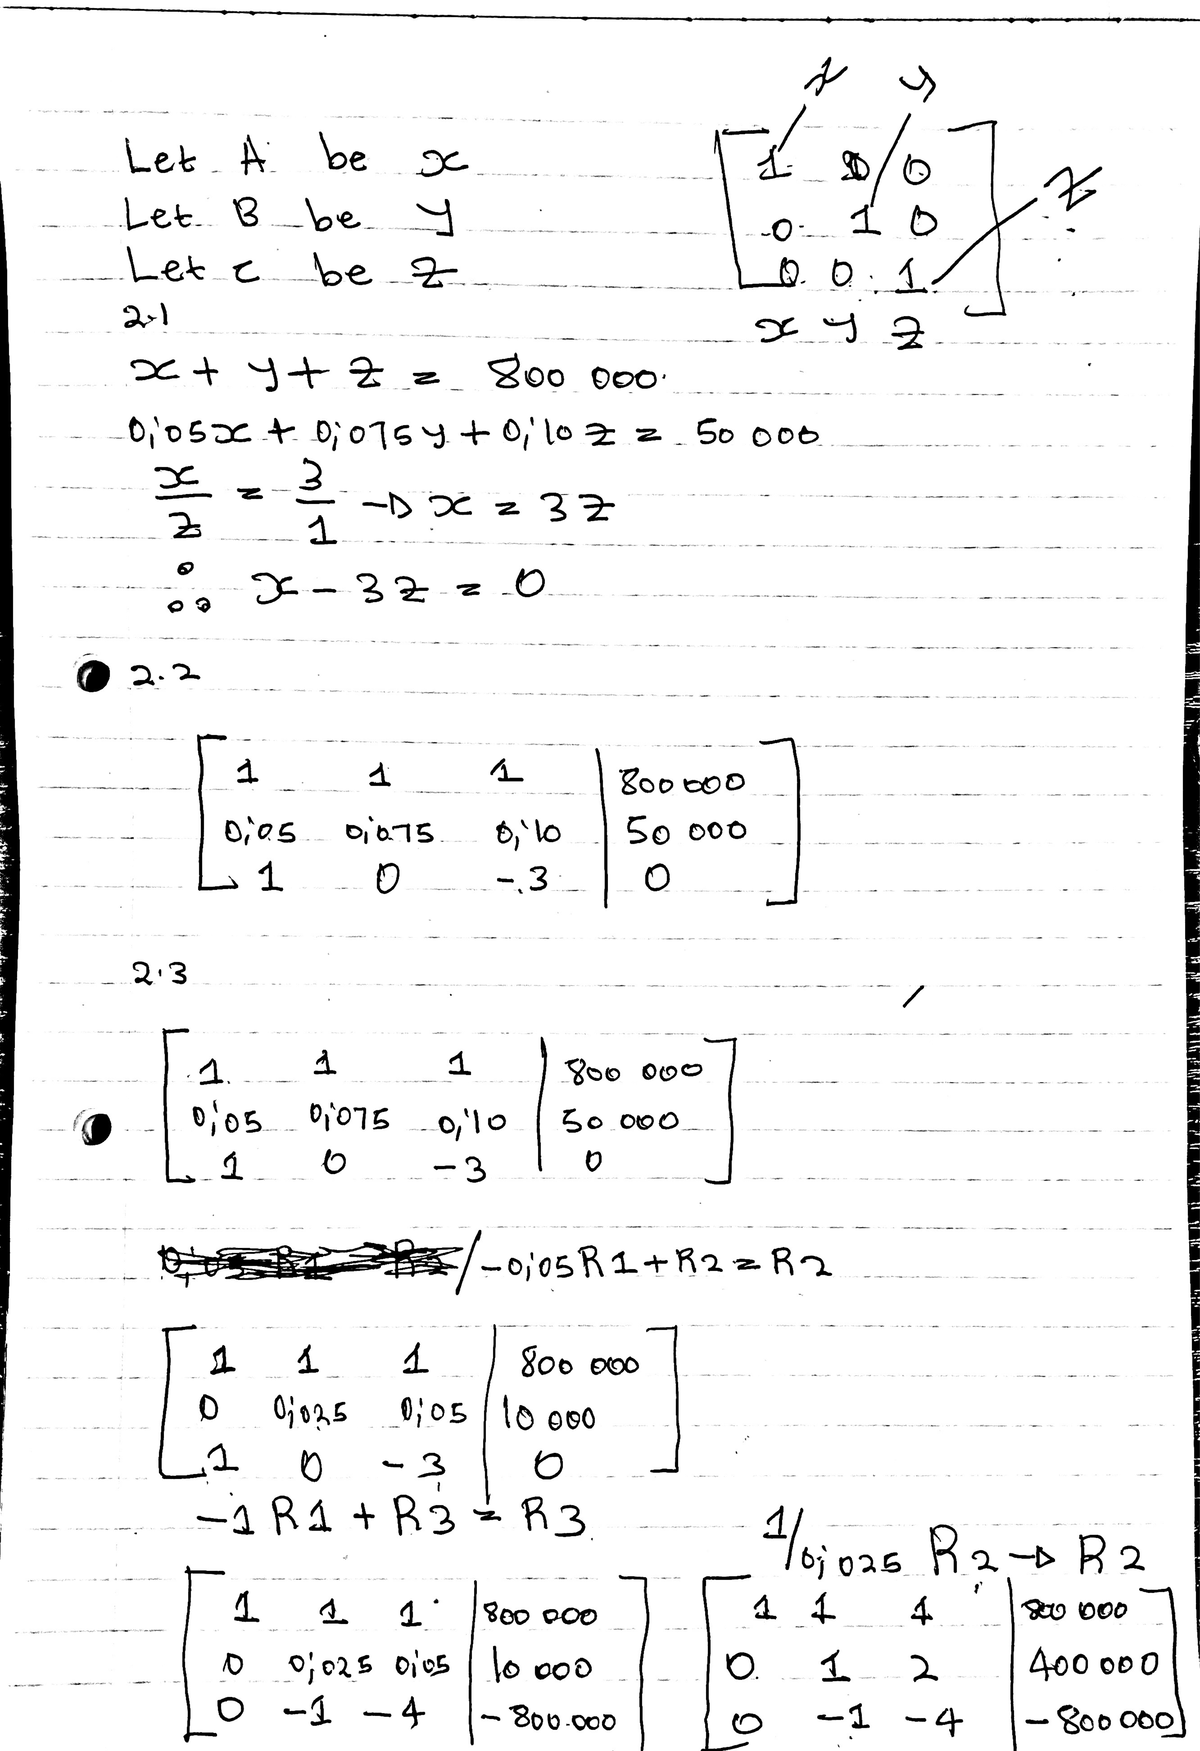 x y
Let A be x
Let B be y
Let c be z
1 0 0
0 1 0 z
0 0 1
x y z
2.1
x + y + z = 800 000
0,05x + 0,075y + 0,10z = 50 000
x/z = 3/1 → x = 3z
∴ x - 3z = 0
2.2
1 1 1 | 800 000
0,05 0,075 0,10 | 50 000
1 0 -3 | 0
2.3
1 1 1 | 800 000
0,05 0,075 0,10 | 50 000
1 0 -3 | 0
/ -0,05R1 + R2 = R2
1 1 1 | 800 000
0 0,025 0,05 | 10 000
1 0 -3 | 0
-1 R1 + R3 = R3
1 1 1 | 800 000
0 0,025 0,05 | 10 000
0 -1 -4 | -800 000
1/0,025 R2 → R2
1 1 1 | 800 000
0 1 2 | 400 000
0 -1 -4 | -800 000